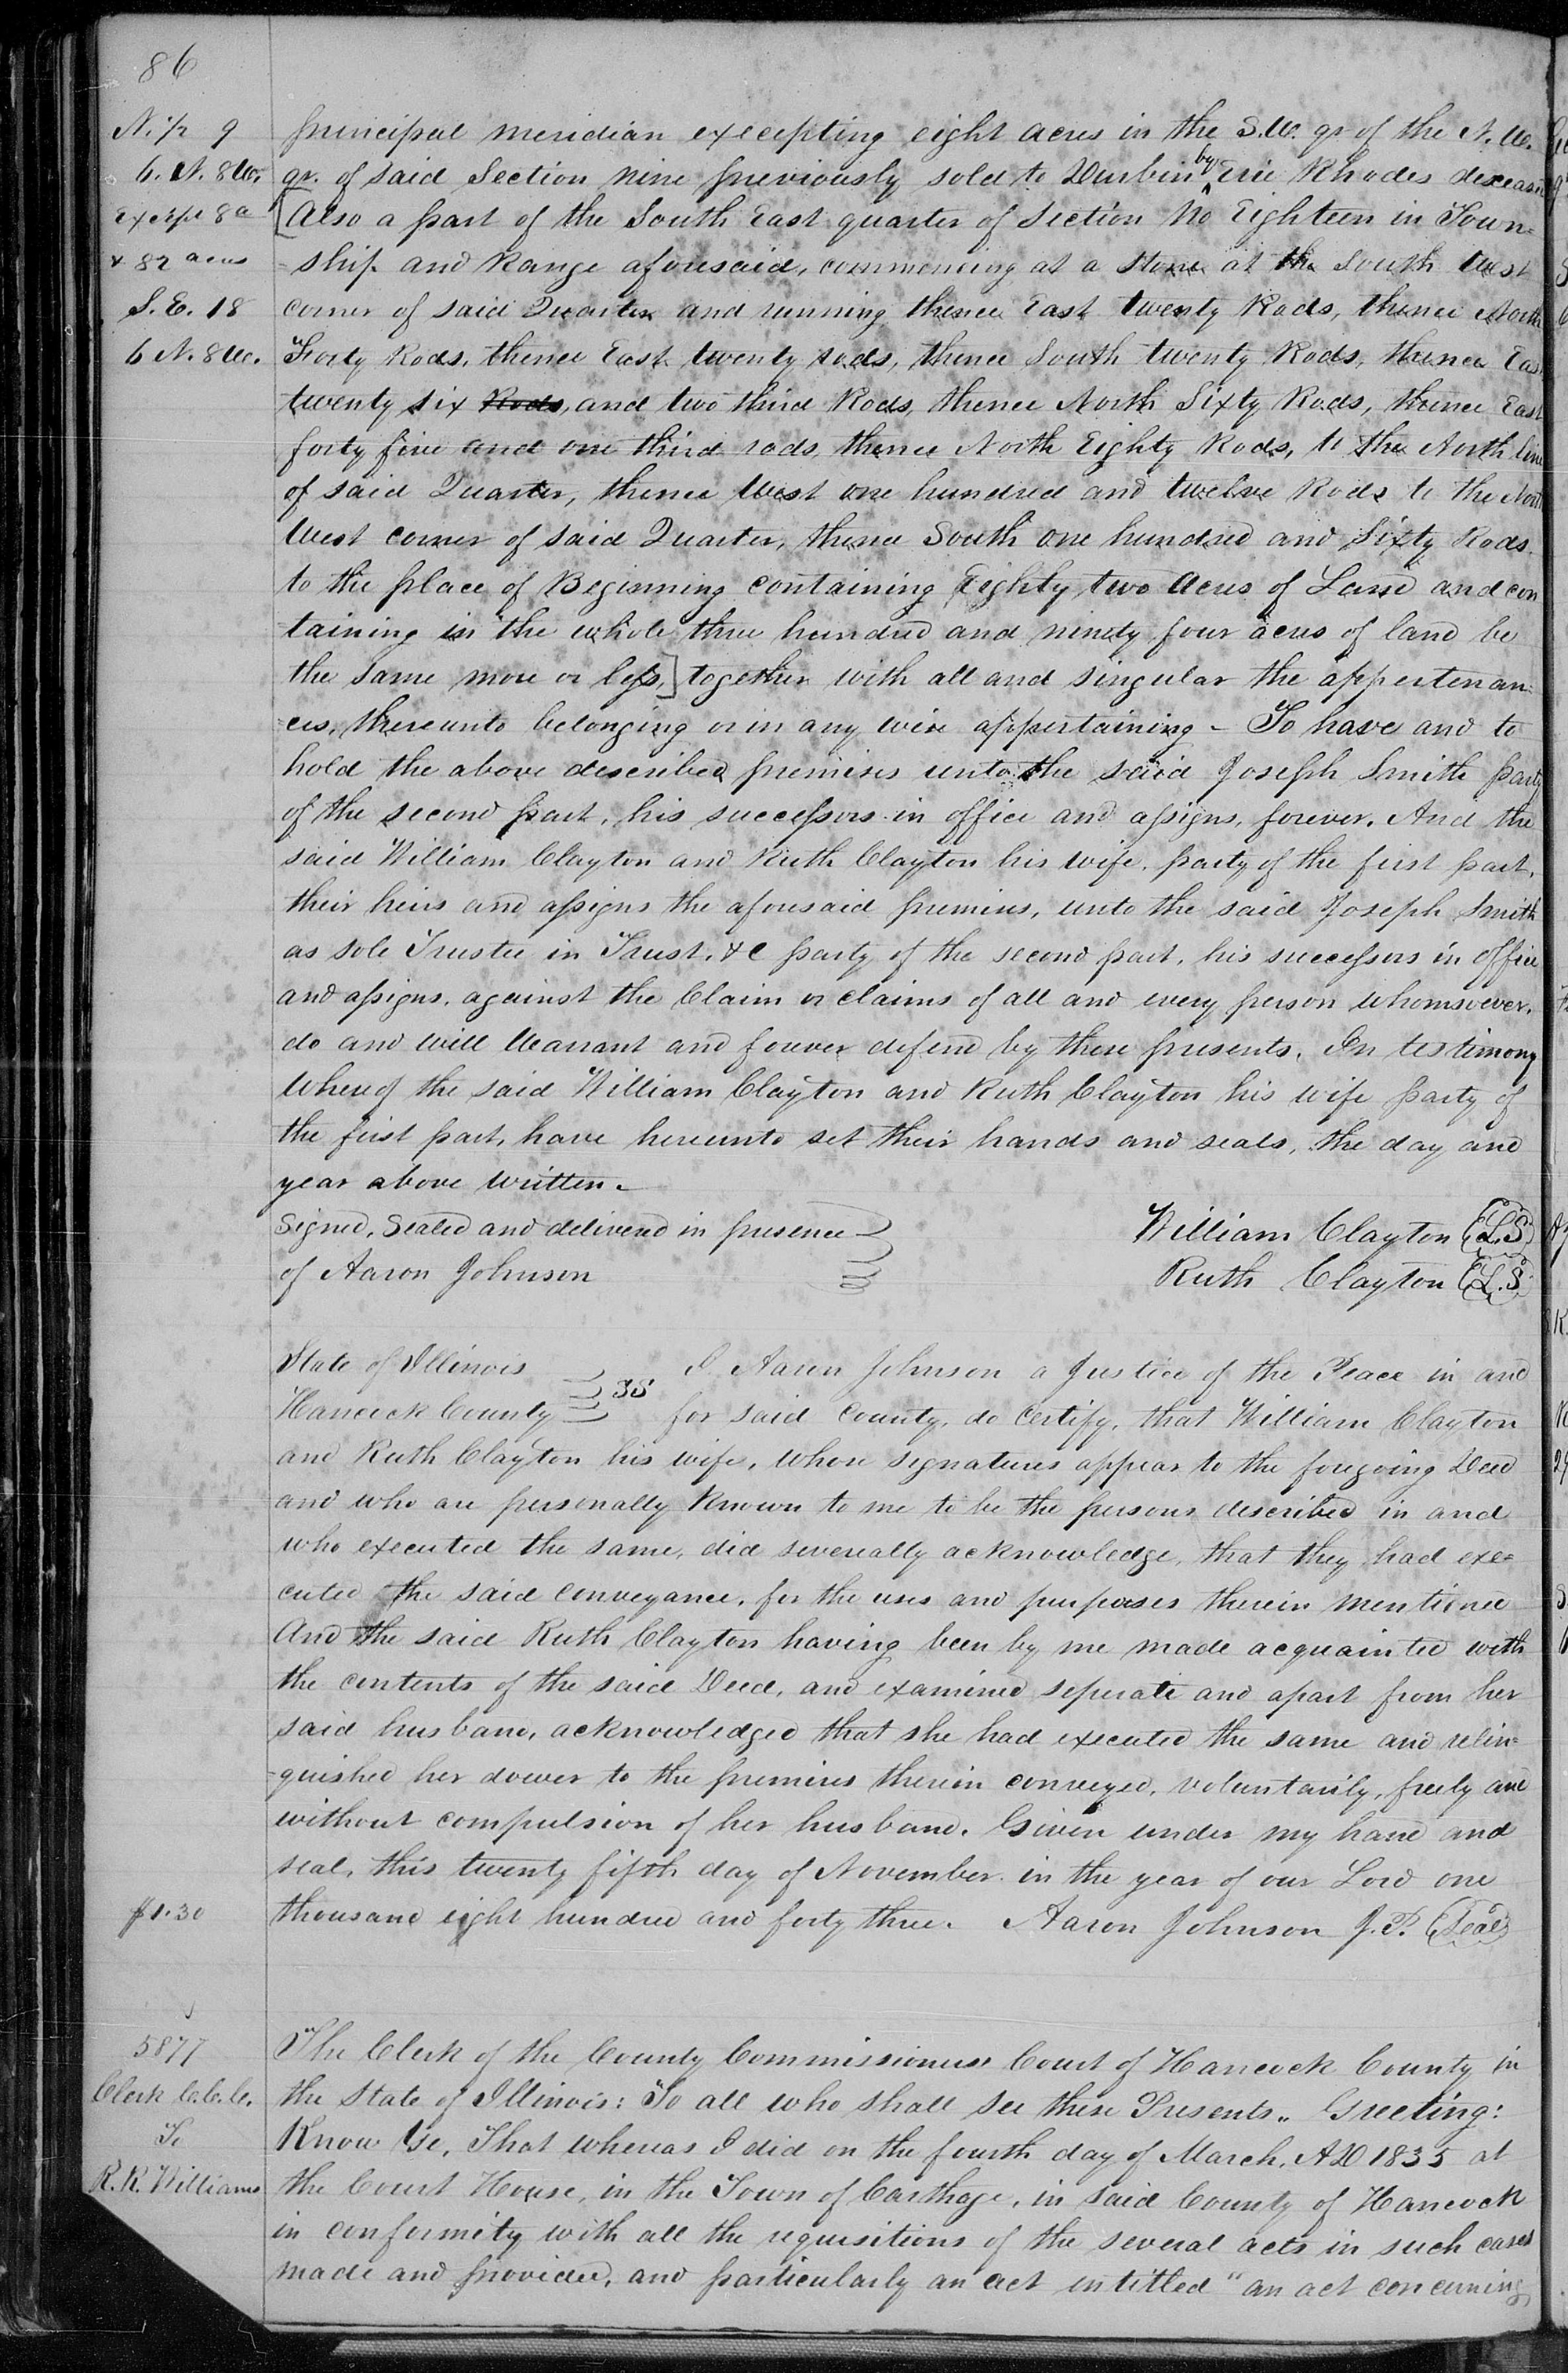 86
N. 1/2 9
6. N. 8 W.
Except 8 a
& 82 acres
S. E. 18
6 N. 8 W.
principal meridian excepting eight acres in the S.W. qr of the N.W.
qr. of said Section nine previously sold to Durbin by Erie Rhodes deceased
[Also a part of the South East quarter of Section No Eighteen in Town=
=ship and Range aforesaid, commencing at a stone at the South West
corner of said Quarter and running thence East twenty Rods, thence North
Forty Rods, thence East twenty rods, thence South twenty Rods, thence East
twenty six Rods, and two third Rods, thence North Sixty Rods, thence East
forty five and one third rods thence North Eighty Rods, to the North line
of said Quarter, thence West one hundred and twelve Rods to the North
West corner of said Quarter, thence South one hundred and Sixty Rods.
to the place of Beginning containing Eighty two Acres of Land and con
taining in the whole three hundred and ninety four acres of land be
the same more or less,] together with all and singular the appertenan=
ces, thereunto belonging or in any wise appertaining - To have and to
hold the above described premises unto the said Joseph Smith party
of the second part, his successors in office and assigns, forever. And the
said William Clayton and Ruth Clayton his wife, party of the first part,
their heirs and assigns the aforesaid premises, unto the said Joseph Smith
as sole Trustee in Trust, &c party of the second part, his successors in office
and assigns, against the Claim or claims of all and every person whomsoever,
do and will Warrant and forever defend by these presents. In testimony
Whereof the said William Clayton and Ruth Clayton his wife party of
the first part, have hereunto set their hands and seals, the day and
year above written.
Signed, Sealed and delivered in presence
of Aaron Johnson
William Clayton (L.S)
Ruth Clayton (L.S)
State of Illinois
Hancock County SS
I Aaron Johnson a Justice of the Peace in and
for said County, do Certify, that William Clayton
and Ruth Clayton his wife, whose signatures appear to the foregoing Deed
and who are personally Known to me to be the persons described in and
who executed the same, did severeally acknowledge, that they had exe=
cuted the said conveyance, for the uses and purposes therein mentioned
And the said Ruth Clayton having been by me made acquainted with
the contents of the said Deed, and examined seperate and apart from her
said husband, acknowledged that she had executed the same and relin=
=quished her dower to the premises therein conveyed, voluntarily, freely and
without compulsion of her husband. Given under my hand and
seal, this twenty fifth day of November in the year of our Lord one
$1.30
thousand eight hundred and forty three. Aaron Johnson J.P. (Seal)
5877
Clerk C.C.C.
To
R. R. Williams
The Clerk of the County Commissioners Court of Hancock County in
the State of Illinois: To all who shall see these Presents.. Greeting:
Know Ye, That whereas I did on the fourth day of March, AD 1835 at
the Court House, in the Town of Carthage, in said County of Hancock
in conformity with all the requisitions of the several acts in such cases
made and provided, and particularly an act intitled "an act concerning